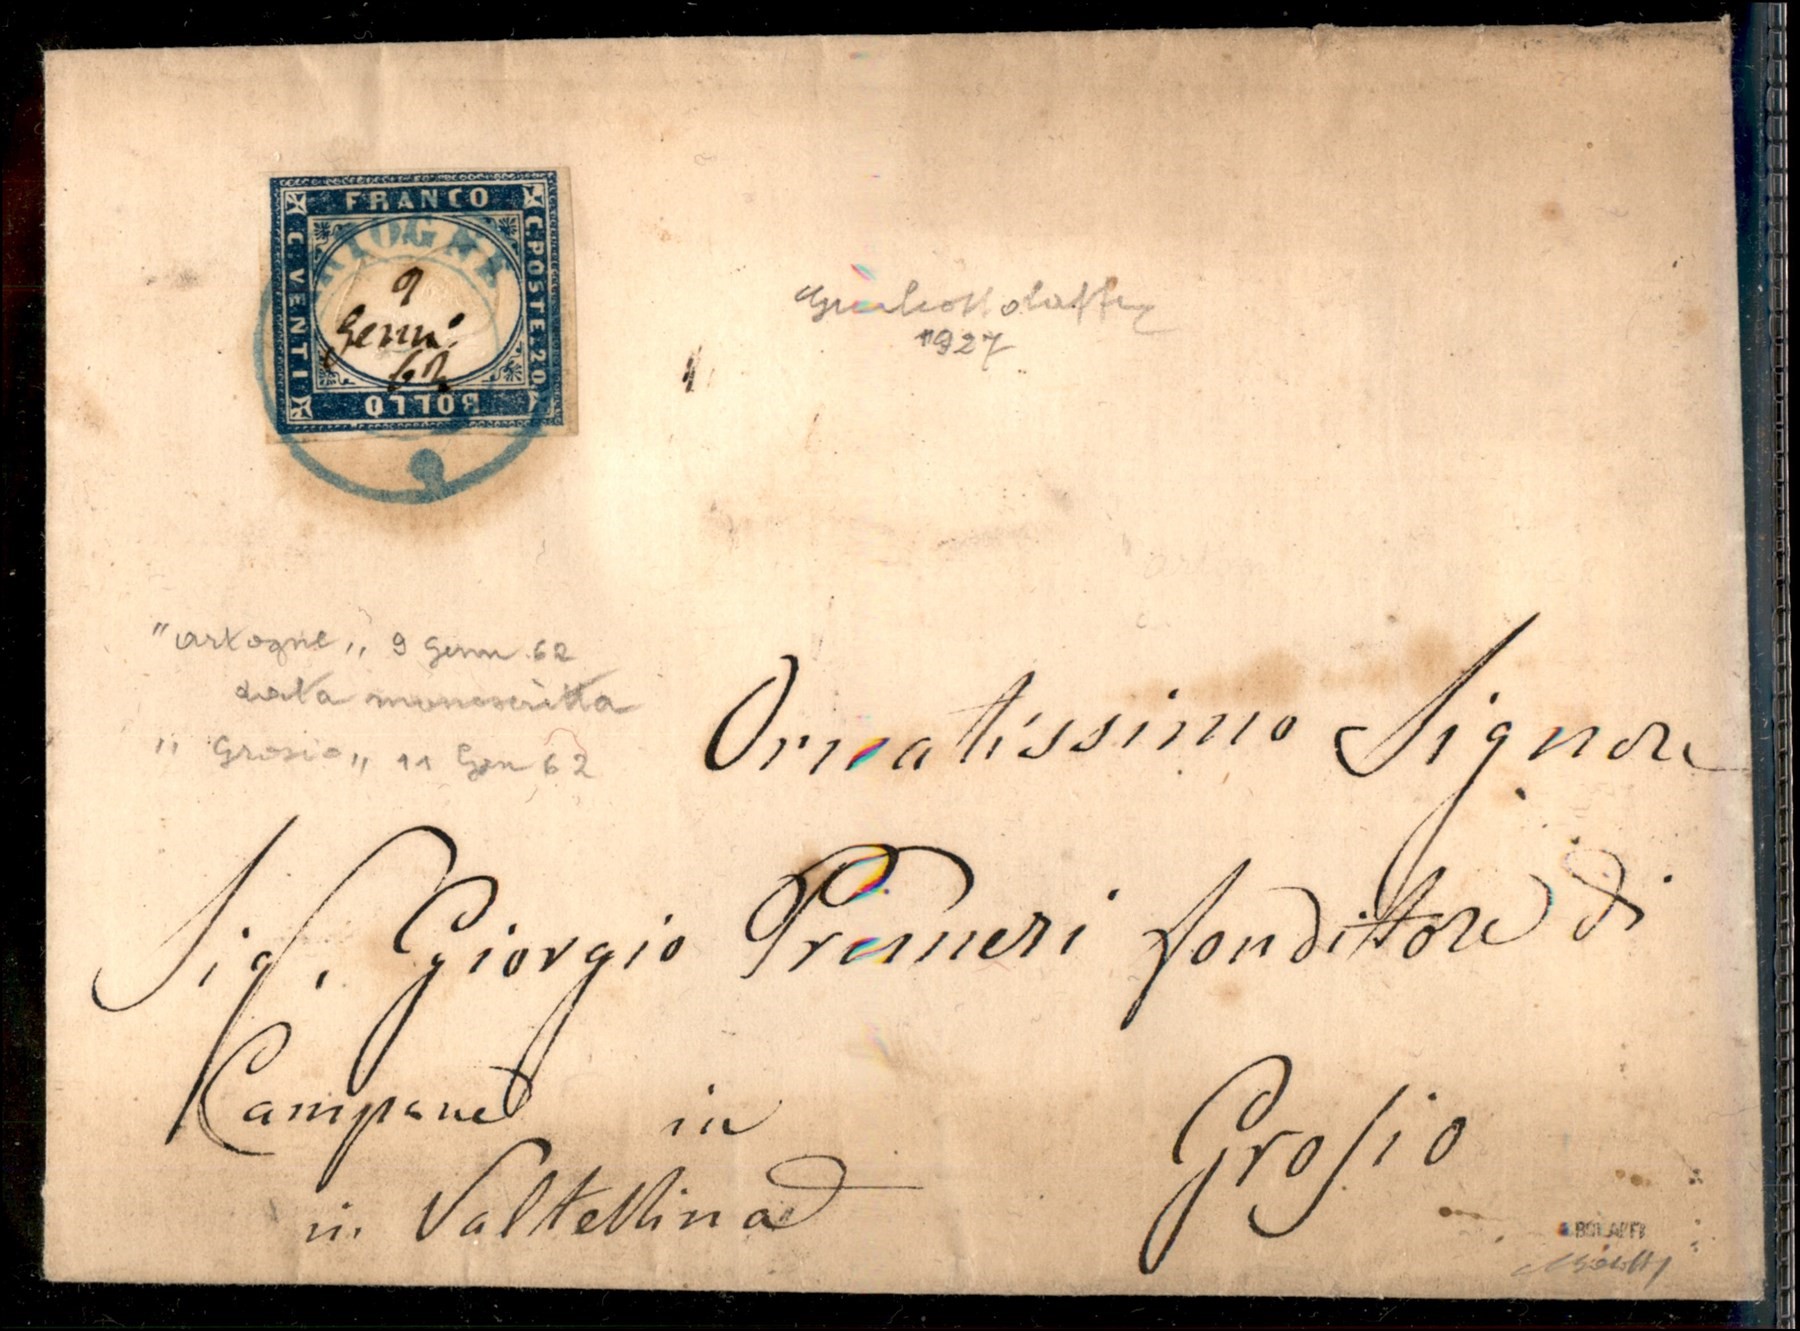 FRANCO
C. POSTE. 20
C. VENTI
BOLLO
RTOGNE
9
Genn.
62
1927
"artogne" 9 Genn. 62
data manoscritta
"Grosio" 11 Gen 62
Ornatissimo Signore
Sig. Giorgio Pruneri fonditore di
Campane in Grosio
in Valtellina
BOLAFFI